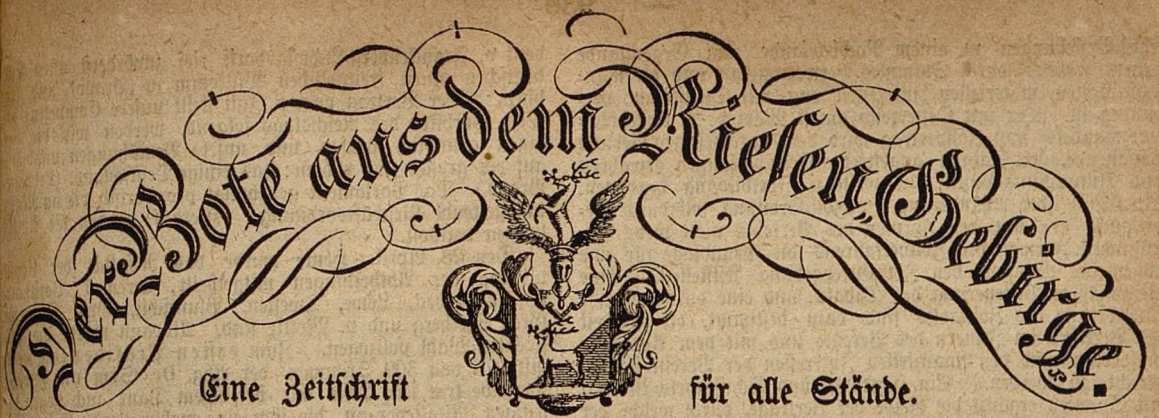 Der Bote aus dem Riesen-Gebirge.
Eine Zeitschrift für alle Stände.